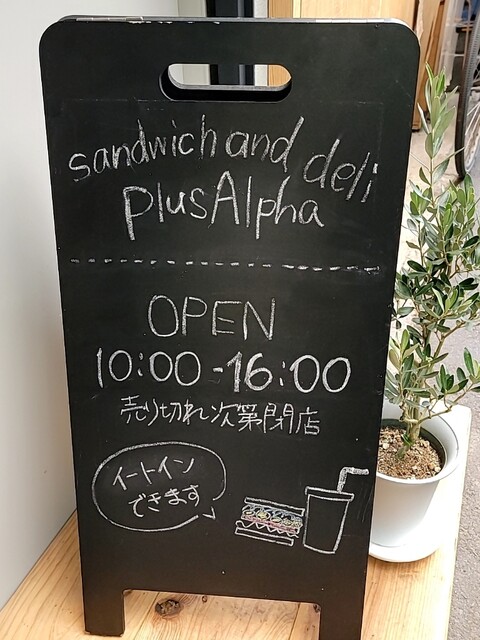 sandwich and deli
plusAlpha
OPEN
10:00-16:00
売り切れ次第閉店
イートイン
できます